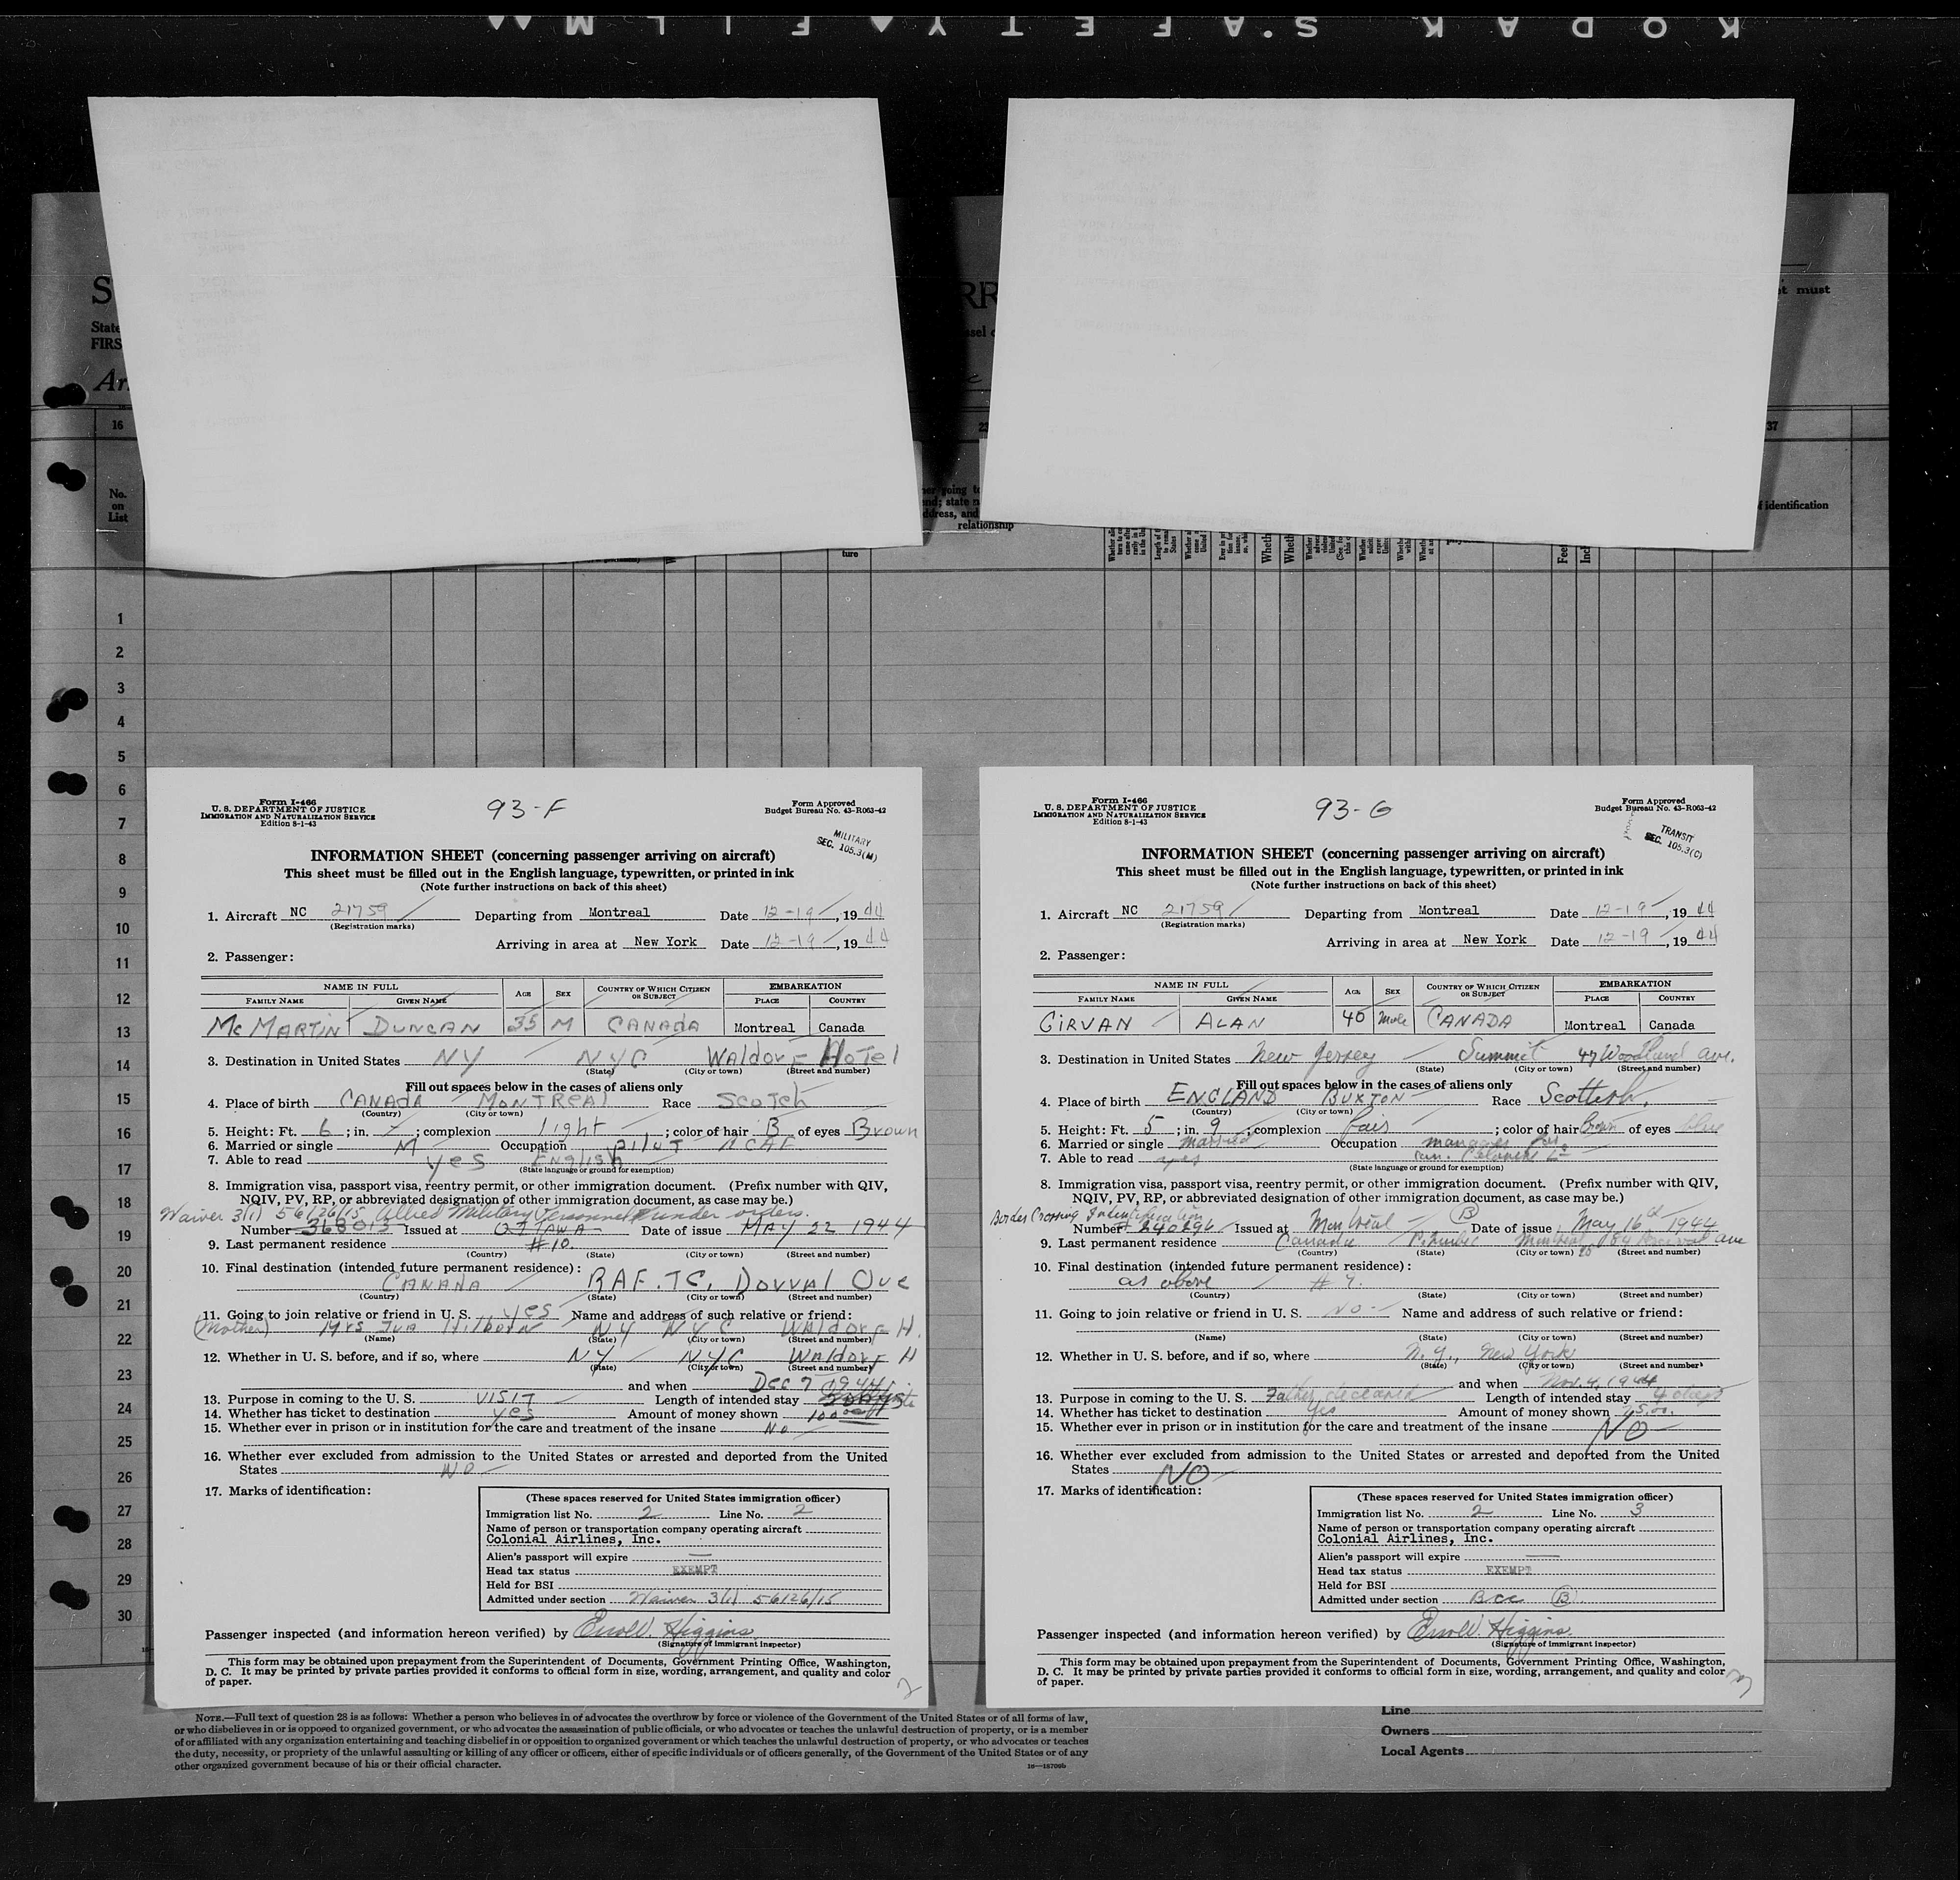 KODAK S.AFETY FILM
S
RR
t must
State
FIRS
ssel
Ar
16
37
No.
on
List
relationship
ture
identification
1
2
3
4
5
6
7
8
9
10
11
12
13
14
15
16
17
18
19
20
21
22
23
24
25
26
27
28
29
30
Form I-466
U. S. DEPARTMENT OF JUSTICE
IMMIGRATION AND NATURALIZATION SERVICE
Edition 8-1-43
93-F
Form Approved
Budget Bureau No. 43-R063-42
MILITARY
SEC. 105.3(M)
INFORMATION SHEET (concerning passenger arriving on aircraft)
This sheet must be filled out in the English language, typewritten, or printed in ink
(Note further instructions on back of this sheet)
1. Aircraft NC 21759 Departing from Montreal Date 12-19, 1944
(Registration marks)
Arriving in area at New York Date 12-19, 1944
2. Passenger:
NAME IN FULL AGE SEX COUNTRY OF WHICH CITIZEN OR SUBJECT EMBARKATION
FAMILY NAME GIVEN NAME PLACE COUNTRY
McMARTIN DUNCAN 35 M CANADA Montreal Canada
3. Destination in United States NY NYC Waldorf Hotel
(State) (City or town) (Street and number)
Fill out spaces below in the cases of aliens only
4. Place of birth CANADA MONTREAL Race Scotch
(Country) (City or town)
5. Height: Ft. 6; in. ; complexion light; color of hair B of eyes Brown
6. Married or single M Occupation Pilot RCAF
7. Able to read yes English
(State language or ground for exemption)
8. Immigration visa, passport visa, reentry permit, or other immigration document. (Prefix number with QIV,
NQIV, PV, RP, or abbreviated designation of other immigration document, as case may be.)
Waiver 3(1) 56126/15 Allied Military Personnel under orders.
Number 368013 Issued at OTTAWA Date of issue MAY 22 1944
9. Last permanent residence #10
(Country) (State) (City or town) (Street and number)
10. Final destination (intended future permanent residence):
CANADA RAF.TC. Dorval Que
(Country) (State) (City or town) (Street and number)
11. Going to join relative or friend in U. S. yes Name and address of such relative or friend:
(Mother) Mrs Hilborn NY NYC Waldorf H.
(Name) (State) (City or town) (Street and number)
12. Whether in U. S. before, and if so, where NY NYC Waldorf H
(State) (City or town) (Street and number)
and when Dec 7 1944
13. Purpose in coming to the U. S. VISIT Length of intended stay
14. Whether has ticket to destination yes Amount of money shown 100
15. Whether ever in prison or in institution for the care and treatment of the insane No
16. Whether ever excluded from admission to the United States or arrested and deported from the United
States NO
17. Marks of identification:
(These spaces reserved for United States immigration officer)
Immigration list No. 2 Line No. 2
Name of person or transportation company operating aircraft
Colonial Airlines, Inc.
Alien's passport will expire —
Head tax status EXEMPT
Held for BSI
Admitted under section Waiver 3(1) 56126/15
Passenger inspected (and information hereon verified) by Errol Higgins
(Signature of immigrant inspector)
This form may be obtained upon prepayment from the Superintendent of Documents, Government Printing Office, Washington,
D. C. It may be printed by private parties provided it conforms to official form in size, wording, arrangement, and quality and color
of paper.
2
Form I-466
U. S. DEPARTMENT OF JUSTICE
IMMIGRATION AND NATURALIZATION SERVICE
Edition 8-1-43
93-G
Form Approved
Budget Bureau No. 43-R063-42
TRANSIT
SEC. 105.3(C)
INFORMATION SHEET (concerning passenger arriving on aircraft)
This sheet must be filled out in the English language, typewritten, or printed in ink
(Note further instructions on back of this sheet)
1. Aircraft NC 21759 Departing from Montreal Date 12-19, 1944
(Registration marks)
Arriving in area at New York Date 12-19, 1944
2. Passenger:
NAME IN FULL AGE SEX COUNTRY OF WHICH CITIZEN OR SUBJECT EMBARKATION
FAMILY NAME GIVEN NAME PLACE COUNTRY
GIRVAN ALAN 40 Male CANADA Montreal Canada
3. Destination in United States New Jersey Summit 47 Woodland Ave.
(State) (City or town) (Street and number)
Fill out spaces below in the cases of aliens only
4. Place of birth ENGLAND BUXTON Race Scottish.
(Country) (City or town)
5. Height: Ft. 5; in. 9; complexion fair; color of hair Brown of eyes blue
6. Married or single married Occupation manager
7. Able to read yes
(State language or ground for exemption)
8. Immigration visa, passport visa, reentry permit, or other immigration document. (Prefix number with QIV,
NQIV, PV, RP, or abbreviated designation of other immigration document, as case may be.)
Border Crossing Identification B
Number 240296 Issued at Montreal Date of issue May 16th 1944
9. Last permanent residence Canada Montreal Ave
(Country) (State) (City or town) (Street and number)
10. Final destination (intended future permanent residence):
as above #9.
(Country) (State) (City or town) (Street and number)
11. Going to join relative or friend in U. S. NO Name and address of such relative or friend:
(Name) (State) (City or town) (Street and number)
12. Whether in U. S. before, and if so, where N.Y., New York
(State) (City or town) (Street and number)
and when Nov. 4, 1944
13. Purpose in coming to the U. S. Father deceased Length of intended stay 4 days
14. Whether has ticket to destination Yes Amount of money shown
15. Whether ever in prison or in institution for the care and treatment of the insane NO
16. Whether ever excluded from admission to the United States or arrested and deported from the United
States NO
17. Marks of identification:
(These spaces reserved for United States immigration officer)
Immigration list No. 2 Line No. 3
Name of person or transportation company operating aircraft
Colonial Airlines, Inc.
Alien's passport will expire —
Head tax status EXEMPT
Held for BSI
Admitted under section Bcc B
Passenger inspected (and information hereon verified) by Errol Higgins
(Signature of immigrant inspector)
This form may be obtained upon prepayment from the Superintendent of Documents, Government Printing Office, Washington,
D. C. It may be printed by private parties provided it conforms to official form in size, wording, arrangement, and quality and color
of paper.
3
NOTE.—Full text of question 28 is as follows: Whether a person who believes in or advocates the overthrow by force or violence of the Government of the United States or of all forms of law,
or who disbelieves in or is opposed to organized government, or who advocates the assassination of public officials, or who advocates or teaches the unlawful destruction of property, or is a member
of or affiliated with any organization entertaining and teaching disbelief in or opposition to organized government or which teaches the unlawful destruction of property, or who advocates or teaches
the duty, necessity, or propriety of the unlawful assaulting or killing of any officer or officers, either of specific individuals or of officers generally, of the Government of the United States or of any
other organized government because of his or their official character.
16—15709b
Line
Owners
Local Agents